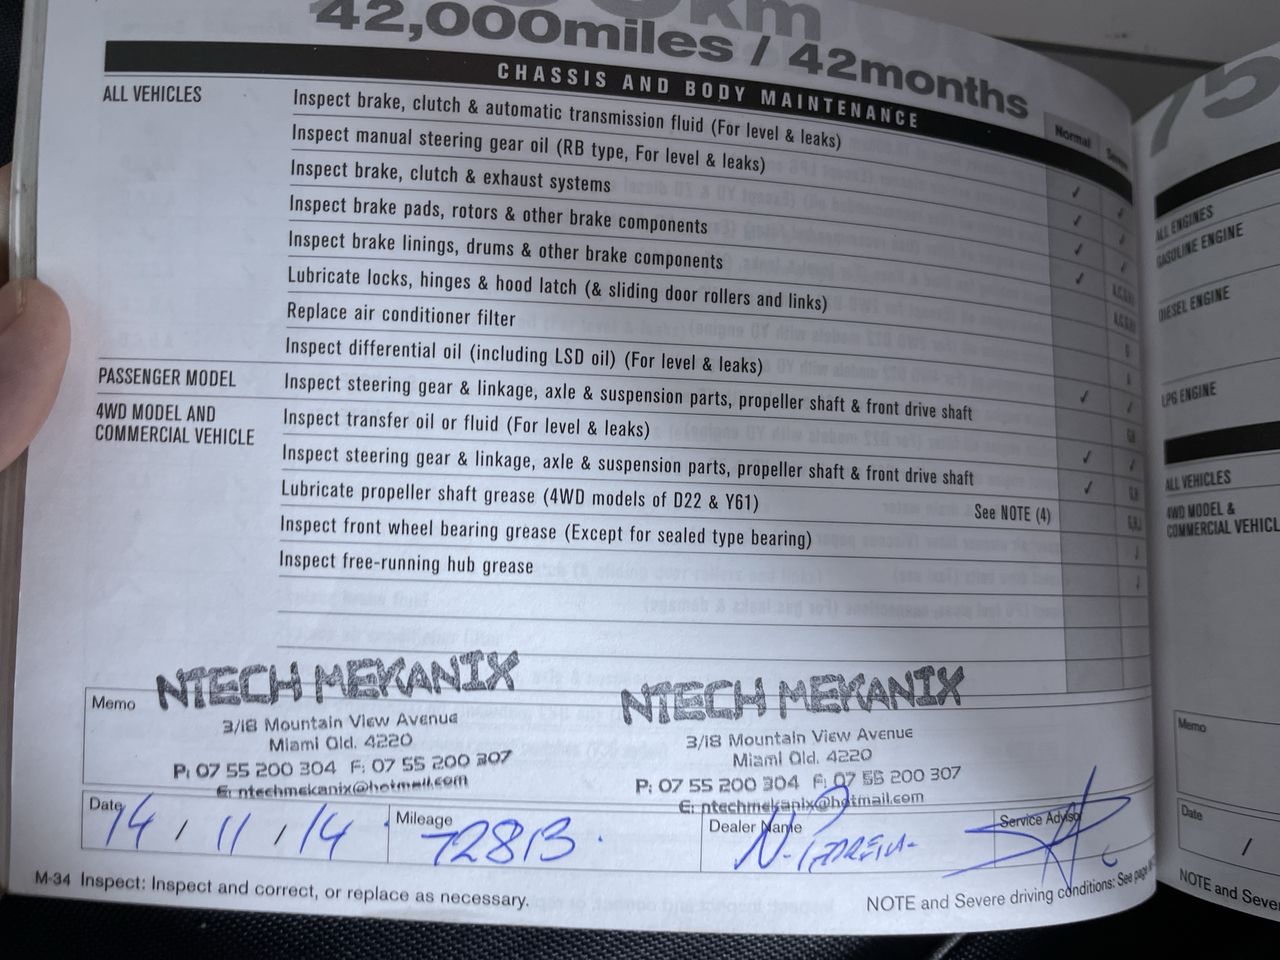 km
42,000miles / 42months
CHASSIS AND BODY MAINTENANCE
Normal
ALL VEHICLES
Inspect brake, clutch & automatic transmission fluid (For level & leaks)
Inspect manual steering gear oil (RB type, For level & leaks)
Inspect brake, clutch & exhaust systems
Inspect brake pads, rotors & other brake components
Inspect brake linings, drums & other brake components
Lubricate locks, hinges & hood latch (& sliding door rollers and links)
Replace air conditioner filter
Inspect differential oil (including LSD oil) (For level & leaks)
PASSENGER MODEL
Inspect steering gear & linkage, axle & suspension parts, propeller shaft & front drive shaft
4WD MODEL AND
COMMERCIAL VEHICLE
Inspect transfer oil or fluid (For level & leaks)
Inspect steering gear & linkage, axle & suspension parts, propeller shaft & front drive shaft
Lubricate propeller shaft grease (4WD models of D22 & Y61) See NOTE (4)
Inspect front wheel bearing grease (Except for sealed type bearing)
Inspect free-running hub grease
Memo
NTECH MEKANIX
3/18 Mountain View Avenue
Miami Qld. 4220
P: 07 55 200 304 F: 07 55 200 307
E: ntechmekanix@hotmail.com
NTECH MEKANIX
3/18 Mountain View Avenue
Miami Qld. 4220
P: 07 55 200 304 F: 07 55 200 307
E: ntechmekanix@hotmail.com
Date
14 / 11 / 14
Mileage
72813
Dealer Name
N.
Service Advisor
M-34 Inspect: Inspect and correct, or replace as necessary.
NOTE and Severe driving conditions: See page
75
ALL ENGINES
GASOLINE ENGINE
DIESEL ENGINE
LPG ENGINE
ALL VEHICLES
4WD MODEL &
COMMERCIAL VEHICL
Memo
Date
/
NOTE and Seve